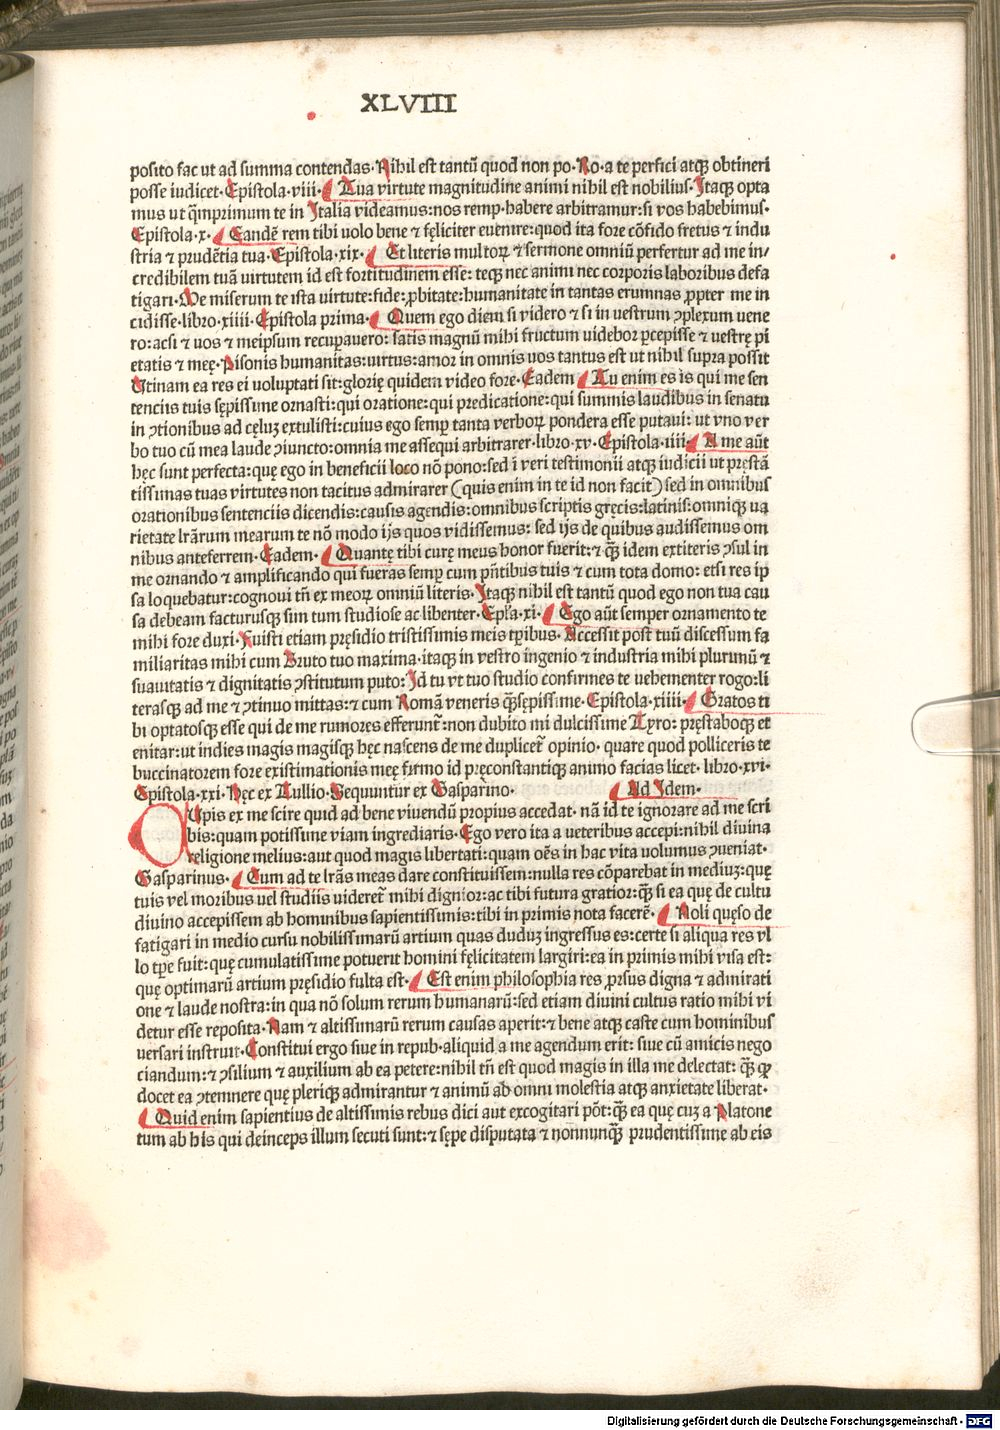 XLVIII
posito fac ut ad summa contendas·Nihil est tantū quod non po·Ro·a te perfici atqꝫ obtineri
posse iudicet·Epistola·viii· Tua virtute magnitudine animi nihil est nobilius·Itaqꝫ opta
mus ut q̄mprimum te in Italia videamus:nos remp·habere arbitramur:si vos habebimus·
Epistola·x· Eandē rem tibi uolo bene ⁊ fęliciter euenire:quod ita fore cōfido fretus ⁊ indu
stria ⁊ prudētia tua·Epistola·xix· Et literis multoꝝ ⁊ sermone omniū perfertur ad me in/
credibilem tuā virtutem id est fortitudinem esse: teqꝫ nec animi nec corporis laboribus defa
tigari·Me miserum te ista virtute:fide:ꝓbitate:humanitate in tantas erumnas ꝓpter me in
cidisse·libro·xiiii·Epistola prima· Quem ego diem si videro ⁊ si in vestrum ꝯplexum uene
ro:acsi ⁊ uos ⁊ meipsum recuꝑauero: satis magnū mihi fructum uidebor ꝑcepisse ⁊ uestrę pi
etatis ⁊ meę·Pisonis humanitas:uirtus:amor in omnis uos tantus est ut nihil supra possit
Utinam ea res ei uoluptati sit:glorię quidem video fore·Eadem Tu enim es is qui me sen
tenciis tuis sępissime ornasti:qui oratione:qui predicatione:qui summis laudibus in senatu
in ꝯtionibus ad cęluꝫ extulisti:cuius ego semꝑ tanta verboꝝ pondera esse putaui: ut vno ver
bo tuo cū mea laude ꝯiuncto:omnia me assequi arbitrarer·libro·xv·Epistola·iiii· A me aūt
hęc sunt perfecta:quę ego in beneficii loco nō pono:sed ī veri testimonii atqꝫ iudicii ut pręstā
tissimas tuas virtutes non tacitus admirarer (quis enim in te id non facit) sed in omnibus
orationibus sentenciis dicendis:causis agendis:omnibus scriptis gręcis:latinis:omniqꝫ ua
rietate lr̄arum mearum te nō modo ijs quos vidissemus: sed ijs de quibus audissemus om
nibus anteferrem·Eadem· Quantę tibi curę meus honor fuerit:⁊ qꝫ̄ idem extiteris ꝯsul in
me ornando ⁊ amplificando qui fueras semꝑ cum pn̄tibus tuis ⁊ cum tota domo: etsi res ip
sa loquebatur:cognoui tn̄ ex meoꝝ omniū literis·Itaqꝫ nihil est tantū quod ego non tua cau
sa debeam facturusqꝫ sim tum studiose ac libenter·Epl̄a·xi· Ego aūt semper ornamento te
mihi fore duxi·Fuisti etiam pręsidio tristissimis meis tꝑibus·Accessit post tuū discessum fa
miliaritas mihi cum Bruto tuo maxima·itaqꝫ in vestro ingenio ⁊ industria mihi plurunū ⁊
suauitatis ⁊ dignitatis ꝯstitutum puto:Id tu vt tuo studio confirmes te uehementer rogo:li
terasqꝫ ad me ⁊ ꝯtinuo mittas:⁊ cum Romā veneris qꝫ̄sępissime·Epistola·xiiii· Gratos ti
bi optatosqꝫ esse qui de me rumores efferunt᷑:non dubito mi dulcissime Tyro: pręstaboqꝫ et
enitar:ut indies magis magisqꝫ hęc nascens de me duplicet᷑ opinio· quare quod polliceris te
buccinatorem fore existimationis meę firmo id pręconstantiqꝫ animo facias licet· libro·xvi·
Epistola·xxi·Hęc ex Tullio·Sequuntur ex Gasparino· Ad Idem·
CUpis ex me scire quid ad bene viuendū propius accedat· nā id te ignorare ad me scri
bis:quam potissime viam ingrediaris·Ego vero ita a ueteribus accepi:nihil diuina
religione melius:aut quod magis libertati:quam oēs in hac vita uolumus ꝯueniat·
Gasparinus· Cum ad te lr̄as meas dare constituissem:nulla res cōparebat in mediuꝫ:quę
tuis vel moribus vel studiis uideret᷑ mihi dignior:ac tibi futura gratior:qꝫ̄ si ea quę de cultu
diuino accepissem ab hominibus sapientissimis:tibi in primis nota facerē· Noli quęso de
fatigari in medio cursu nobilissimarū artium quas duduꝫ ingressus es:certe si aliqua res vl
lo tꝑe fuit:quę cumulatissime potuerit homini fęlicitatem largiri:ea in primis mihi visa est:
quę optimarū artium pręsidio fulta est· Est enim philosophia res ꝓrsus digna ⁊ admirati
one ⁊ laude nostra:in qua nō solum rerum humanarū:sed etiam diuini cultus ratio mihi vi
detur esse reposita·Nam ⁊ altissimarū rerum causas aperit:⁊ bene atqꝫ caste cum hominibus
uersari instruit·Constitui ergo siue in repub·aliquid a me agendum erit: siue cū amicis nego
ciandum:⁊ ꝯsilium ⁊ auxilium ab ea petere:nihil tn̄ est quod magis in illa me delectat: qꝫ̄ ꝙ
docet ea ꝯtemnere quę pleriqꝫ admirantur ⁊ animū ab omni molestia atqꝫ anxietate liberat·
Quid enim sapientius de altissimis rebus dici aut excogitari pōt:qꝫ̄ ea quę cuꝫ a Platone
tum ab his qui deinceps illum secuti sunt:⁊ sępe disputata ⁊ nonnunqꝫ̄ prudentissime ab eis
Digitalisierung gefördert durch die Deutsche Forschungsgemeinschaft - DFG